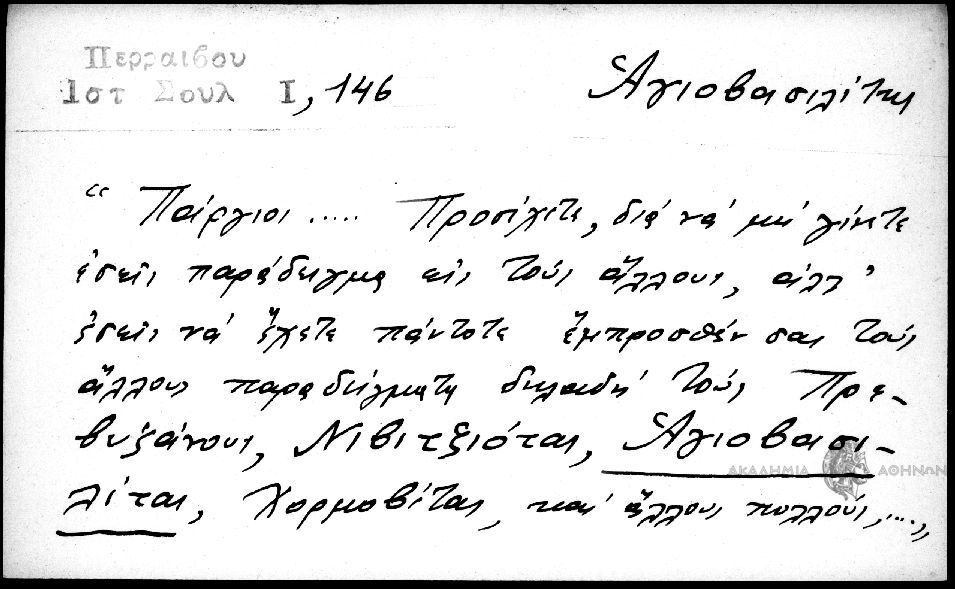 Περραιβου
Ιστ Σουλ Ι, 146
Ἁγιοβασιλίτης
“ Πάργιοι ..... Προσέχετε, διά νά μή γίνετε
ἐσεῖς παράδειγμα εἰς τούς ἄλλους, ἀλλ’
ἐσεῖς νά ἔχετε πάντοτε ἔμπροσθέν σας τούς
ἄλλους παραδείγματα δηλαδή τούς Πρε-
βυζάνους, Νιβιτζιότας, Ἁγιοβασι-
λίτας, Χορμοβίτας, καί ἄλλους πολλούς, ....,,
ΑΚΑΔΗΜΙΑ ΑΘΗΝΩΝ